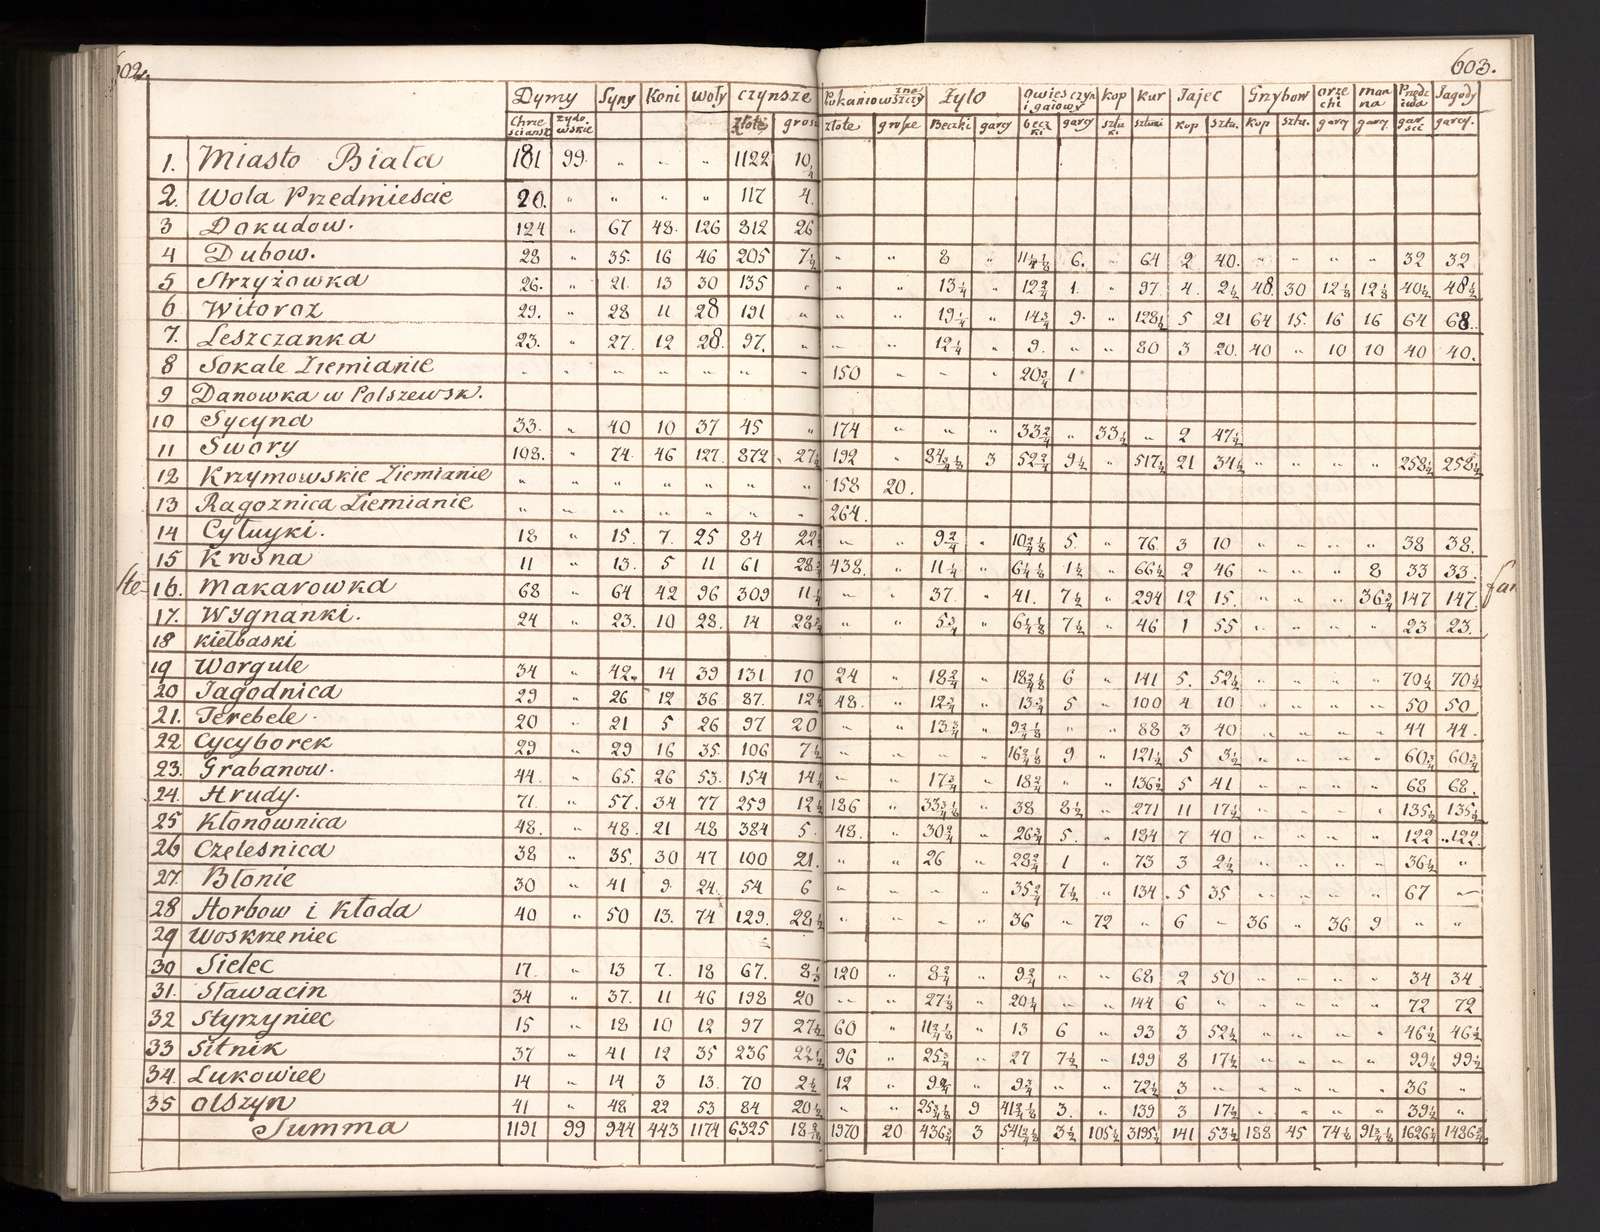 602. 603.
Dymy Syny Koni woły czynsze Żyto Kop Kur Jajec Grzybow orze chi man na Jagody
Chrze zydo wskie złote grosz złote grosze Beczki garcy becz ki garcy sztu ki sztuki kop sztu. kop sztu. garcy garcy garcy.
1. Miasto Biała 181 99 „ „ „ 1122 10
2. Wola Przedmieście 20. „ „ „ „ 117 4.
3 Dokudow. 124 „ 67 48. 126 312 26
4 Dubow. 28 „ 35. 16 46 205 7½ „ „ 8 „ 11¼⅛ 6. „ 64 2 40. „ „ „ „ 32 32
5 Strzyżowka 26. „ 21. 13 30 135 „ „ „ 13¼ „ 12 2/4 1. „ 97 4. 2½ 48. 30 12⅛ 12⅛ 40½ 48½
6 Witoroz 29. „ 28 11 28 191 „ „ „ 19¼ „ 14¾ 9. „ 128½ 5 21 64 15. 16 16 64 68.
7. Leszczanka 23. „ 27. 12 28. 97. „ „ „ 12¼ „ 9. „ „ 80 3 20. 40 „ 10 10 40 40.
8 Sokale Ziemianie „ „ „ „ „ „ „ 150 „ „ „ 20¾ 1
9 Danowka w Polszewsk.
10 Sycyna 33. „ 40 10 37 45 „ 174 „ „ „ 33 2/4 „ 33½ „ 2 47½
11 Swory 108. „ 74. 46 127. 872 27½ 192 „ 84 3 52 2/4 9½ „ 517½ 21 34½ „ „ „ „ 258½ 258½
12 Krzymowskie Ziemianie „ „ „ „ „ „ „ 158 20.
13 Ragoznica Ziemianie „ „ „ „ „ „ „ 264.
14 Cyłuyki. 18 „ 15. 7. 25 84 22 „ „ 9 2/4 „ 10 2/4 ⅛ 5. „ 76 3 10 „ „ „ „ 38 38.
15 Krosna 11 „ 13. 5 11 61 28 438. „ 11¼ „ 6¼⅛ 1½ „ 66½ 2 46 „ „ „ 8 33 33.
16. Makarowka 68 „ 64 42 96 309 11 „ „ 37. „ 41. 7½ „ 294 12 15. „ „ „ 36¾ 147 147.
17. Wygnanki. 24 „ 23. 10 28. 14 28 „ „ 5¾ „ 6¼⅛ 7½ „ 46 1 55 „ „ „ „ 23 23.
18 Kiełbaski
19 Worgule 34 „ 42 14 39 131 10 24 „ 18 2/4 „ 18 2/4 ⅛ 6 „ 141 5. 52½ „ „ „ „ 70½ 70½
20 Jagodnica 29 „ 26 12 36 87. 12½ 48. „ 12¾ „ 13¾ 5 „ 100 4 10 „ „ „ „ 50 50
21. Terebele. 20 „ 21 5 26 97 20 „ „ 13¾ „ 9 2/4 ⅛ „ „ 88 3 40 „ „ „ „ 44 44.
22 Cycyborek 29 „ 29 16 35. 106 7½ „ „ „ „ 16 2/4 ⅛ 9 „ 121½ 5 3½ „ „ „ „ 60¾ 60¾
23. Grabanow. 44. „ 65. 26 53. 154 14 „ „ 17¾ „ 18 2/4 „ „ 136½ 5 41 „ „ „ „ 68 68.
24. Hrudy. 71. „ 57. 34 77 259 12½ 186 „ 33¾⅛ „ 38 8½ „ 271 11 17½ „ „ „ „ 135½ 135½
25 Kłonownica 48. „ 48. 21 48 384 5. 48. „ 30 2/4 „ 26¾ 5. „ 184 7 40 „ „ „ „ 122 122.
26 Czelesnica 38 „ 35. 30 47 100 21. „ „ 26 „ 28 2/4 1 „ 73 3 2½ „ „ „ „ 36½ „
27. Błonie 30 „ 41 9. 24. 54 6 „ „ „ „ 35 2/4 7½ „ 134. 5 35 „ „ „ „ 67 „
28 Horbow i Kłoda 40 „ 50 13. 74 129. 28½ „ „ „ „ 36 „ 72 „ 6 „ 36 „ 36 9 „ „
29 Woskrzeniec
30 Sielec 17. „ 13 7. 18 67. 8⅓ 120 „ 8 2/4 „ 9 2/4 „ „ 68 2 50 „ „ „ „ 34 34
31. Sławacin 34 „ 37. 11 46 198 20 „ „ 27⅛ „ 20¼ „ „ 144 6 „ „ „ „ „ 72 72
32 Styrzyniec 15 „ 18 10 12 97 27½ 60 „ 11 2/4 ⅛ „ 13 6 „ 93 3 52½ „ „ „ „ 46½ 46½
33 Sitnik 37 „ 41 12 35 236 22½ 96 „ 25¾ „ 27 7½ „ 199 8 17½ „ „ „ „ 99½ 99½
34. Łukowiel 14 „ 14 3 13. 70 2½ 12 „ 9 2/4 „ 9¾ „ „ 72½ 3 „ „ „ „ „ 36 „
35 Olszyn 41 „ 48 22 53 84 20½ „ „ 25¾⅛ 9 41 2/4 ⅛ 3. „ 139 3 17½ „ „ „ „ 39½ „
Summa 1191 99 944 443 1174 6325 18 1970 20 436¾ 3 541 3½ 105½ 3195½ 141 53½ 188 45 74⅛ 91¾⅛ 1626¼ 1486¾